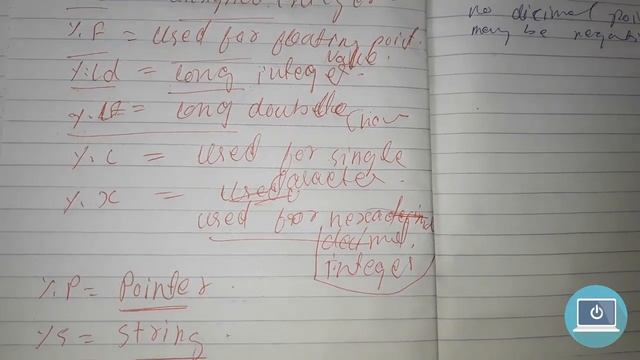 %F = used for floating point
value.
%ld = long integer
%LF = long double
%c = used for single
character
%x = used
used for hexa
decimal.
integer
%P = Pointer.
%s = string
no decimal poi
may be negati